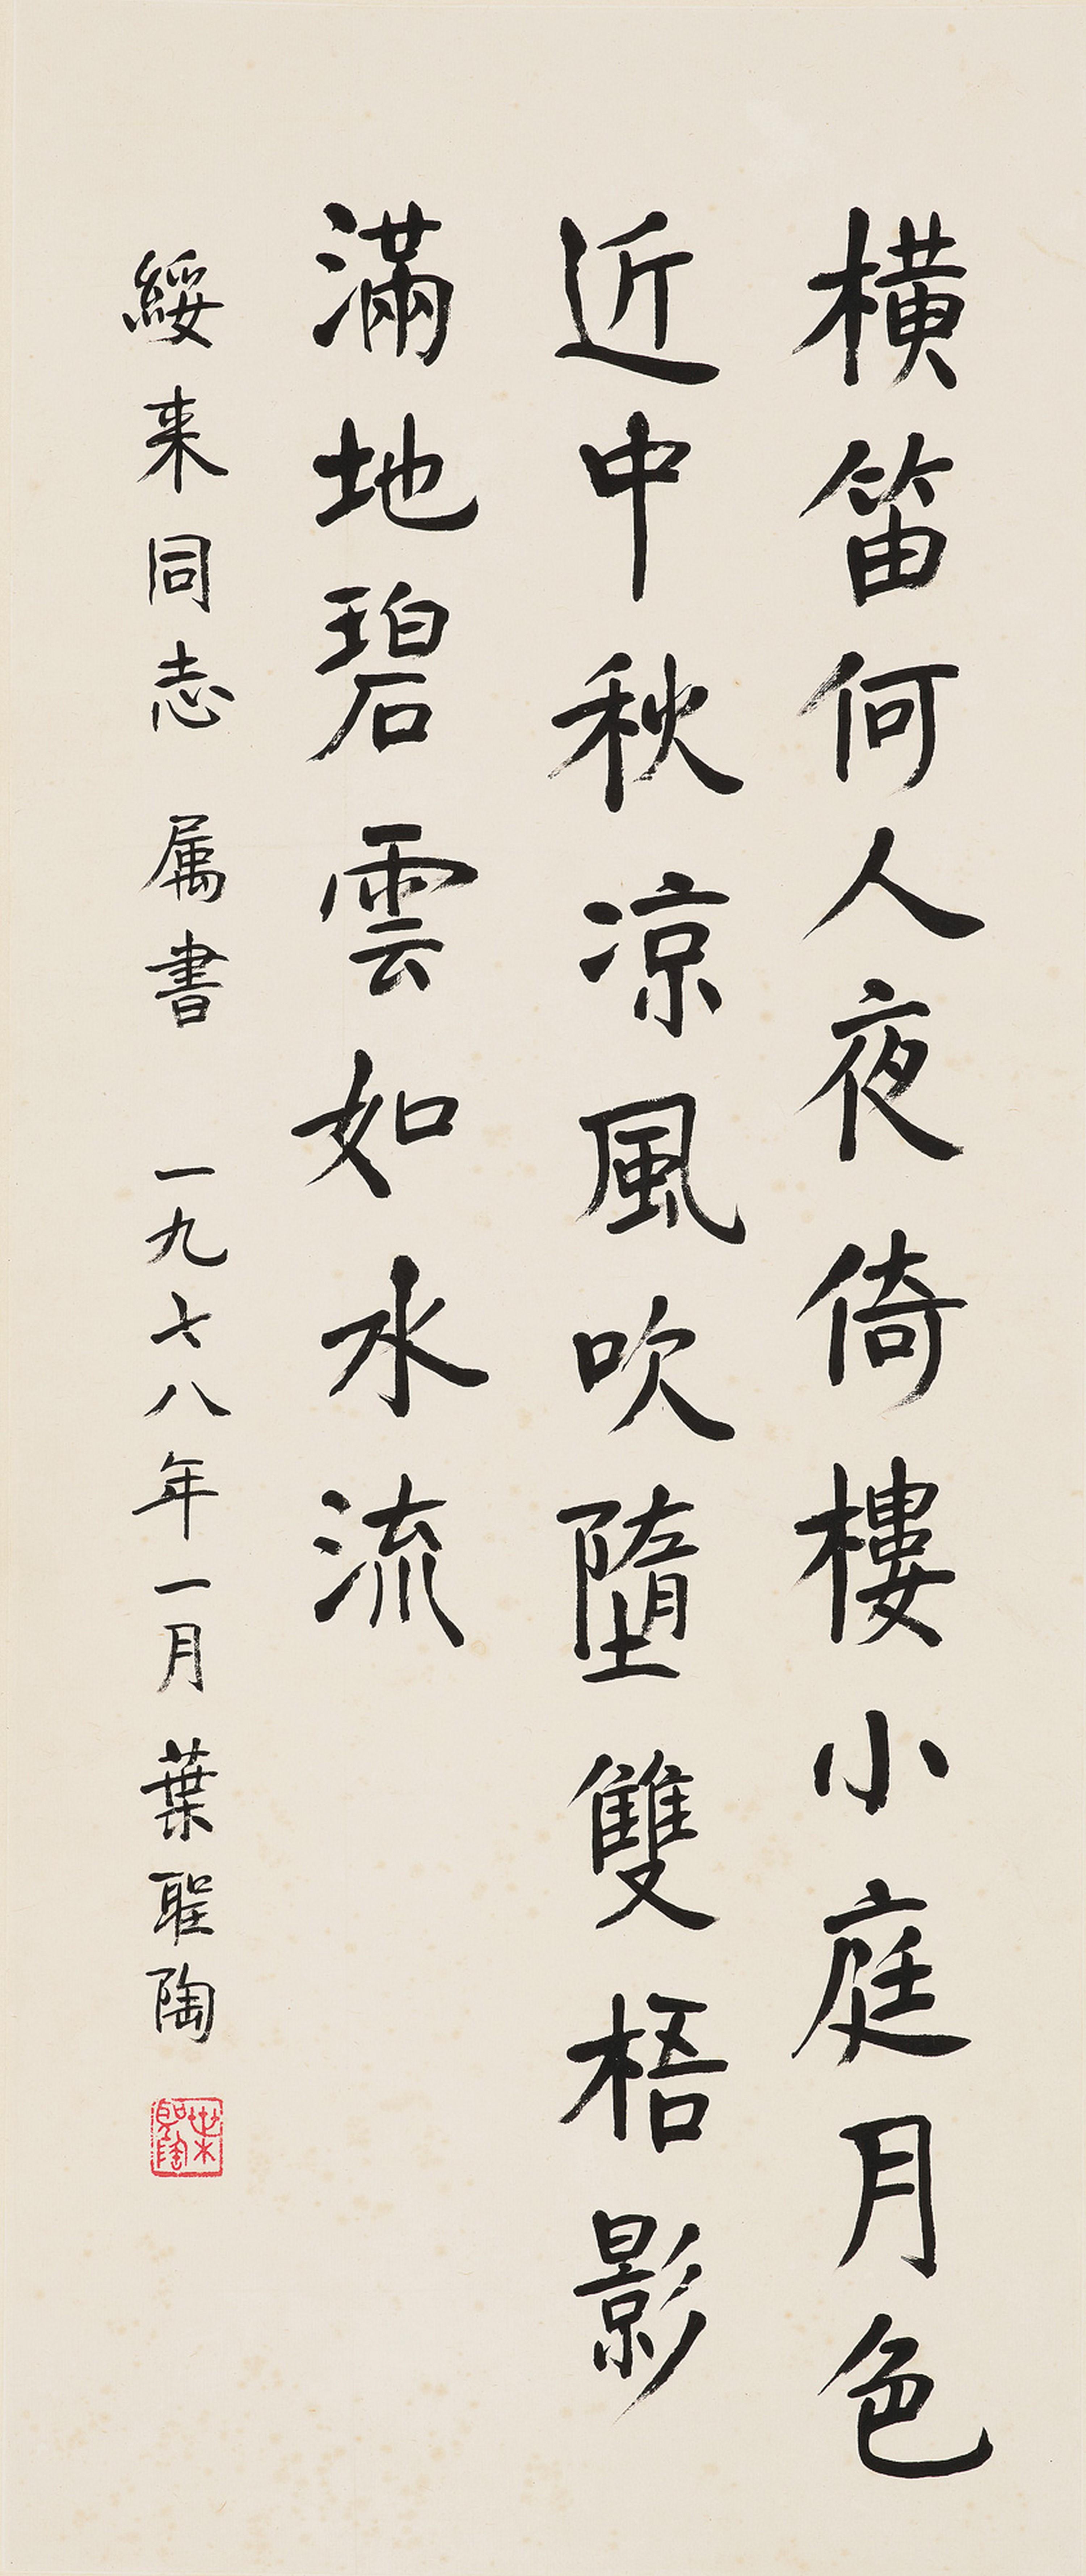 橫笛何人夜倚樓小庭月色
近中秋凉風吹墮雙梧影
滿地碧雲如水流
綏来同志 属書 一九七八年一月葉聖陶
葉聖陶